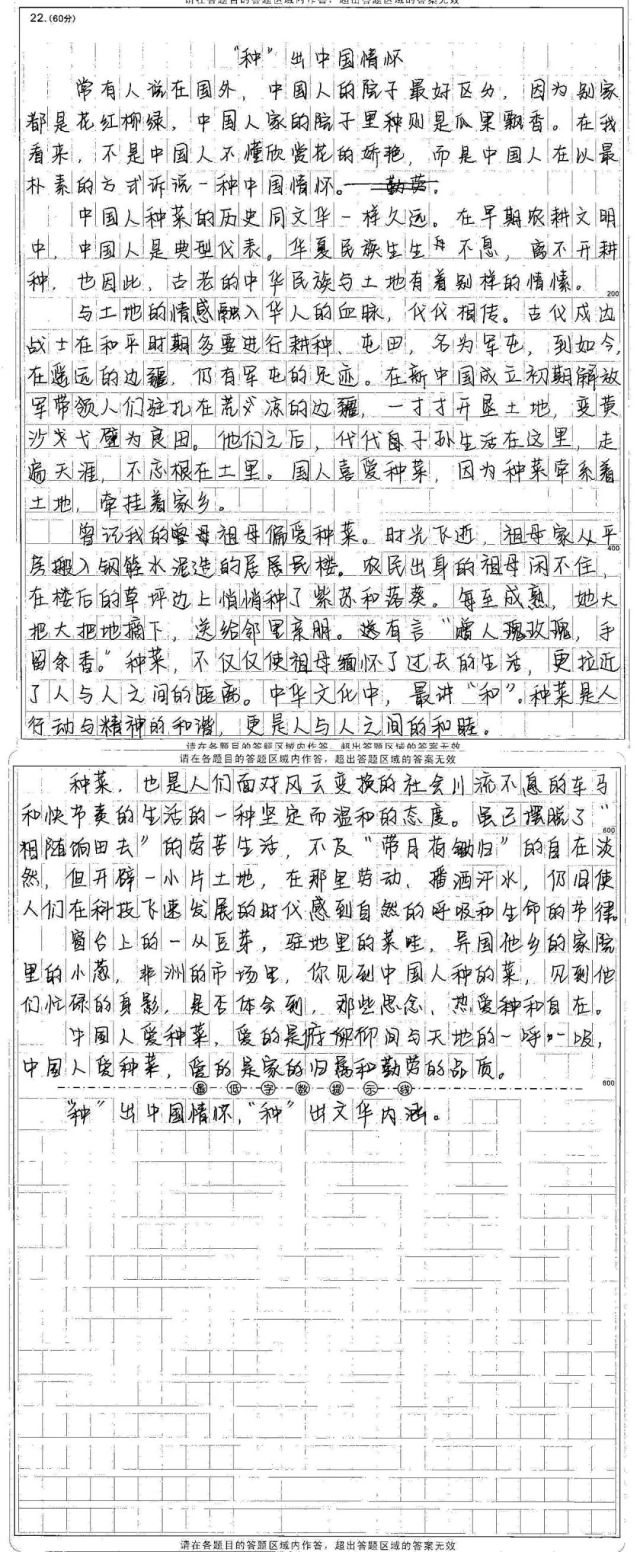 请在各题目的答题区域内作答，超出答题区域的答案无效
22.(60分)
“种”出中国情怀
常有人说在国外，中国人的院子最好区分，因为别家
都是花红柳绿，中国人家的院子里种则是瓜果飘香。在我
看来，不是中国人不懂欣赏花的娇艳，而是中国人在以最
朴素的方式诉说一种中国情怀。
中国人种菜的历史同文华一样久远。在早期农耕文明
中，中国人是典型代表。华夏民族生生不息，离不开耕
种，也因此，古老的中华民族与土地有着别样的情愫。
200
与土地的情感融入华人的血脉，代代相传。古代戍边
战士在和平时期多要进行耕种、屯田，名为军屯，到如今，
在遥远的边疆，仍有军屯的足迹。在新中国成立初期解放
军带领人们驻扎在荒凉的边疆，一寸寸开垦土地，变黄
沙戈壁为良田。他们之后，代代子孙生活在这里，走
遍天涯，不忘根在土里。国人喜爱种菜，因为种菜牵系着
土地，牵挂着家乡。
曾记我的祖母偏爱种菜。时光飞逝，祖母家从平
400
房搬入钢筋水泥造的居民楼。农民出身的祖母闲不住，
在楼后的草坪边上悄悄种了紫苏和落葵。每至成熟，她大
把大把地摘下，送给邻里亲朋。有言“赠人玫瑰，手
留余香。”种菜，不仅仅使祖母缅怀了过去的生活，更拉近
了人与人之间的距离。中华文化中，最讲“和”。种菜是人
行动与精神的和谐，更是人与人之间的和睦。
请在各题目的答题区域内作答，超出答题区域的答案无效
请在各题目的答题区域内作答，超出答题区域的答案无效
种菜，也是人们面对风云变换的社会川流不息的车马
和快节奏的生活的一种坚定而温和的态度。虽已摆脱了“
600
相随饷田去”的劳苦生活，不及“带月荷锄归”的自在淡
然，但开辟一小片土地，在那里劳动、播洒汗水，仍旧使
人们在科技飞速发展的时代感到自然的呼吸和生命的节律
窗台上的一从豆芽，驻地里的菜畦，异国他乡的家院
里的小葱，非洲的市场里，你见到中国人种的菜，见到他
们忙碌的身影，是否体会到，那些思念、热爱种和自在。
中国人爱种菜，爱的是俯仰间与天地的一呼一吸，
中国人爱种菜，爱的是家的归属和勤劳的品质。
800
最低字数提示线
“种”出中国情怀，“种”出文华内涵。
请在各题目的答题区域内作答，超出答题区域的答案无效